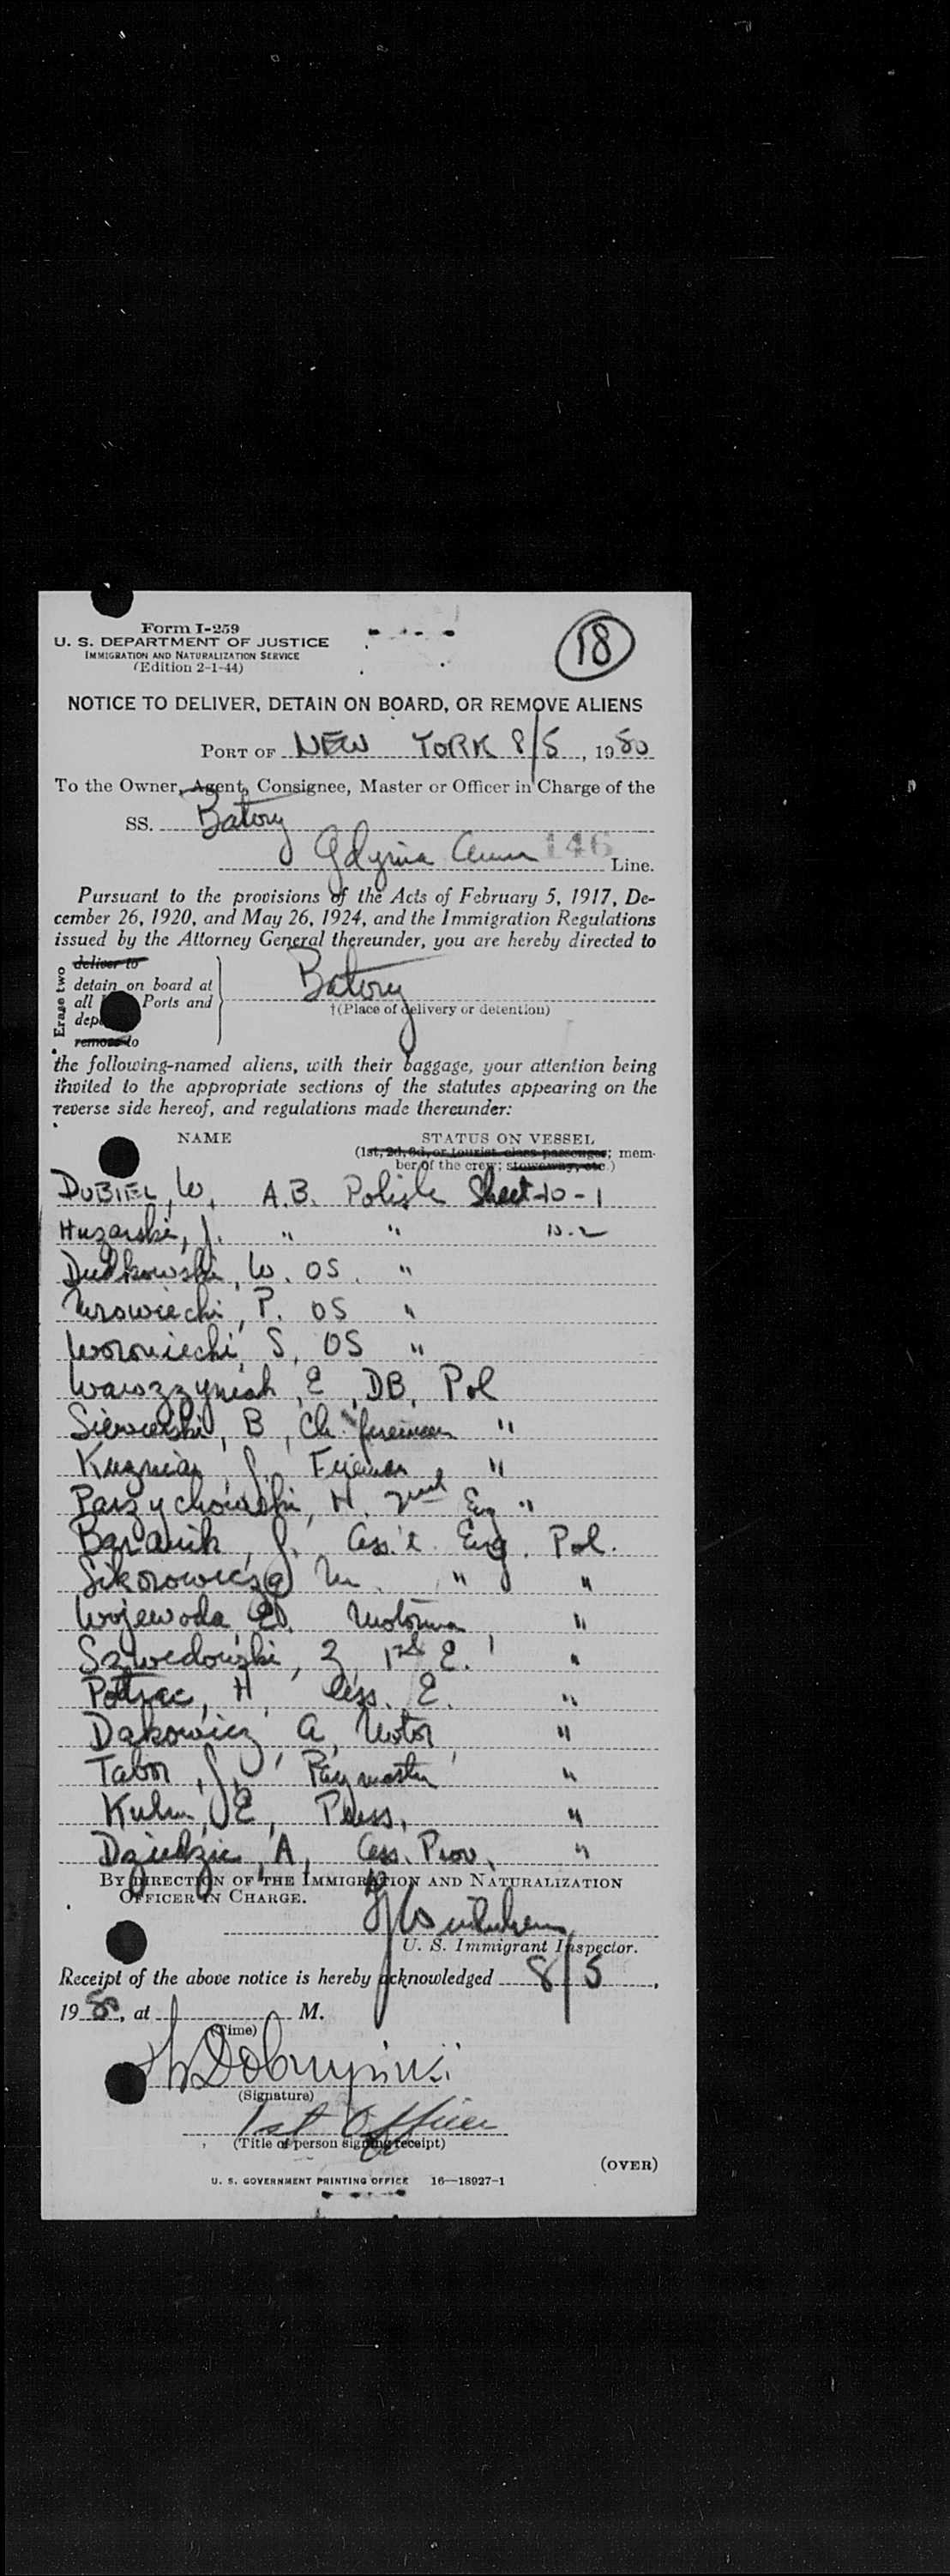 Form I-259
U. S. DEPARTMENT OF JUSTICE
IMMIGRATION AND NATURALIZATION SERVICE
(Edition 2-1-44)
18
NOTICE TO DELIVER, DETAIN ON BOARD, OR REMOVE ALIENS
PORT OF NEW YORK 8/5, 1950
To the Owner, Agent, Consignee, Master or Officer in Charge of the
SS. Batory
Gdynia Amer 146 Line.
Pursuant to the provisions of the Acts of February 5, 1917, De-
cember 26, 1920, and May 26, 1924, and the Immigration Regulations
issued by the Attorney General thereunder, you are hereby directed to
Erase two
deliver to
detain on board at
all Ports and
dep
remove to
Batory
†(Place of delivery or detention)
the following-named aliens, with their baggage, your attention being
invited to the appropriate sections of the statutes appearing on the
reverse side hereof, and regulations made thereunder:
NAME STATUS ON VESSEL
(1st, 2d, 3d, or tourist class passenger; mem-
ber of the crew; stowaway, etc.)
DUBIEL, W, A.B. Polish Sheet 10-1
Huzarski, J. " " 10-2
Dudkowski, W. OS. "
P. OS "
Woroniecki, S, OS "
Wawrzyniak, E, DB, Pol
B, Ch. fireman "
Kuzniar, J. Fireman "
Parzychowski, H. 2nd Eng "
Baranik, J. Ass't. Eng. Pol.
Sikorowicz M. " "
Wojewoda ED. Motorman "
Szwedowski, Z, 1st E. "
H, Ass. E. "
Dakowicz A, Motor "
Tabor, J, Paymaster "
Kuhn, E, "
Dziedzic, A, Ass. Prov. "
BY DIRECTION OF THE IMMIGRATION AND NATURALIZATION
OFFICER IN CHARGE.
U. S. Immigrant Inspector.
Receipt of the above notice is hereby acknowledged 8/5,
1950, at M.
(Time)
(Signature)
1st Officer
(Title of person signing receipt)
(OVER)
U. S. GOVERNMENT PRINTING OFFICE 16—18927-1